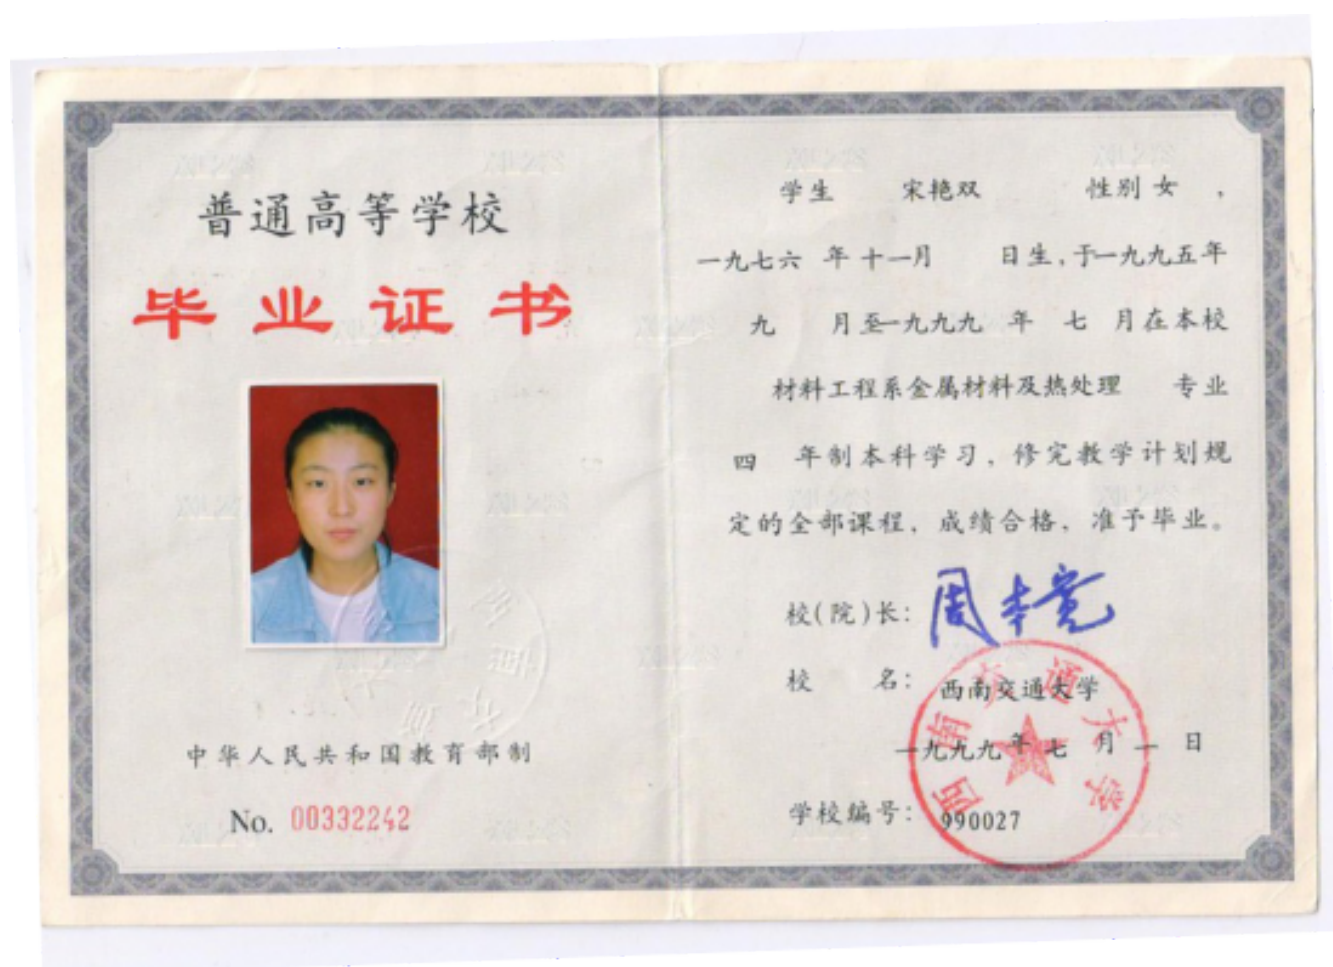 普通高等学校
毕业证书
中华人民共和国教育部制
No. 00332242
学生 宋艳双 性别 女 ,
一九七六 年 十一月 日生,于一九九五年
九 月至一九九九 年 七 月在本校
材料工程系金属材料及热处理 专业
四 年制本科学习, 修完教学计划规
定的全部课程, 成绩合格, 准予毕业。
校(院)长: 周本宽
校 名: 西南交通大学
一九九九年 七 月 一 日
学校编号: 990027
西南交通大学